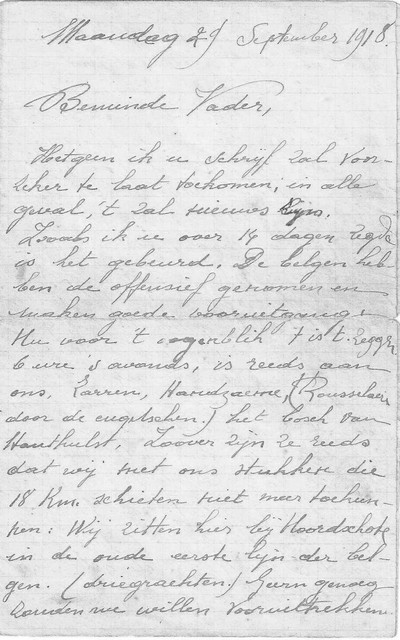 Maandag 29 September 1918.
Beminde Vader,
Hetgeen ik u schrijf zal voor-
zeker te laat toekomen; in alle
geval, 't zal nieuws zijn.
Zooals ik u over 14 dagen zegde
is het gebeurd. De belgen heb-
ben de offensief genomen en
maken goede vooruitgang.
Nu voor 't oogenblik, t is t. zeggen
6 ure 's avonds, is reeds aan
ons, Zarren, Handzaeme, (Rousselaere
door de engelschen.) het bosch van
Houthulst. Zoover zijn ze reeds
dat wij met ons stukken die
18 Km. schieten niet meer toekun-
nen: Wij zitten hier bij Noordschote
in de oude eerste lijn der bel-
gen. (driegrachten.) Geern genoeg
zouden we willen vooruittrekken